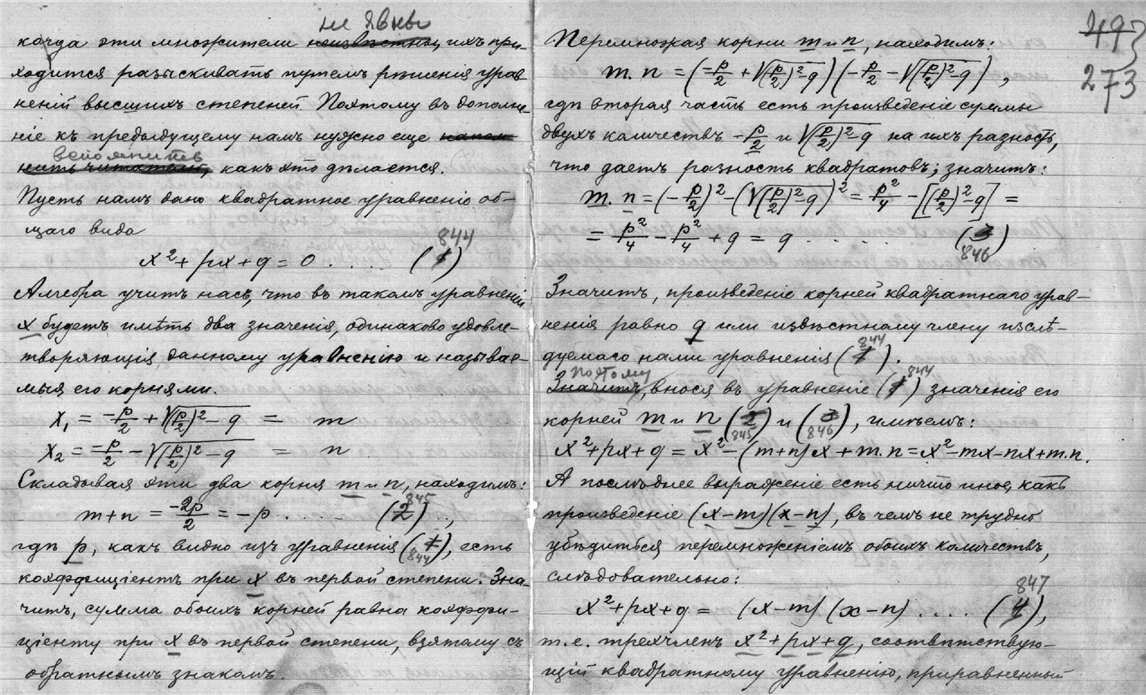 не явны
когда эти множители неизвѣстны, ихъ при-
ходится разыскивать путемъ рѣшенія урав
неній высшихъ степеней. Поэтому въ дополне-
ніе къ предыдущему намъ нужно еще напом
вспомнить
нить читателю, какъ это дѣлается.
Пусть намъ дано квадратное уравненіе об-
щаго вида
844
x² + px + q = 0 . . . . (1)
Алгебра учитъ насъ, что въ такомъ уравненіи
x будетъ имѣть два значенія, одинаково удовле-
творяющія данному уравненію и называе-
мыя его корнями.
x₁ = -p/2 + √(p/2)² - q = m
x₂ = -p/2 - √(p/2)² - q = n
Складывая эти два корня m и n, находимъ:
845
m + n = -2p/2 = -p . . . . . (2) . .,
гдѣ p, какъ видно изъ уравненія (1), есть
844
коэффиціентъ при x въ первой степени. Зна
читъ, сумма обоихъ корней равна коэффи-
ціенту при x въ первой степени, взятому съ
обратнымъ знакомъ.
497
273
Перемножая корни m и n, находимъ:
m.n = (-p/2 + √(p/2)² - q)(-p/2 - √(p/2)² - q),
гдѣ вторая часть есть произведеніе суммы
двухъ количествъ -p/2 и √(p/2)² - q на ихъ разность,
что даетъ разность квадратовъ; значитъ:
m.n = (-p/2)² - (√(p/2)² - q)² = p²/4 - [(p/2)² - q] =
= p²/4 - p²/4 + q = q . . . . . . (3)
846
Значитъ, произведеніе корней квадратнаго урав-
ненія равно q или извѣстному члену изслѣ-
дуемаго нами уравненія (1).
844
поэтому
Значитъ, внося въ уравненіе (1) 844 значенія его
корней m и n (2) и (3), имѣемъ:
845 846
x² + px + q = x² - (m+n)x + m.n = x² - mx - nx + m.n.
А послѣднее выраженіе есть ничто иное, какъ
произведеніе (x-m)(x-n), въ чемъ не трудно
убѣдиться перемноженіемъ обоихъ количествъ,
слѣдовательно:
847
x² + px + q = (x-m)(x-n) . . . . (4),
т.е. трехчленъ x² + px + q, соотвѣтствую-
щій квадратному уравненію, приравненный